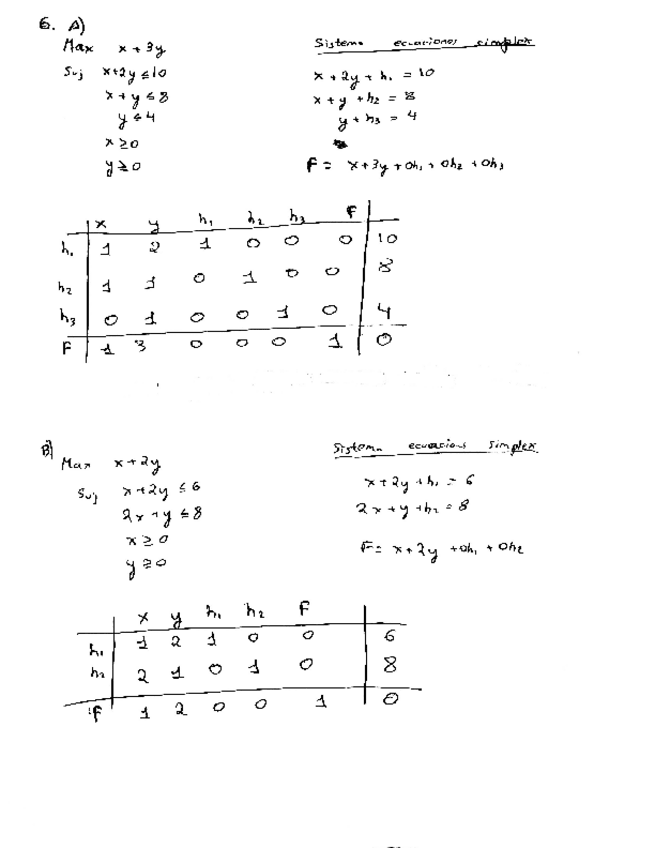 6. A)
Max x + 3y
Suj x+2y ≤ 10
x + y ≤ 8
y ≤ 4
x ≥ 0
y ≥ 0
Sistema ecuaciones simplex
x + 2y + h₁ = 10
x + y + h₂ = 8
y + h₃ = 4
F = x+3y + 0h₁ + 0h₂ + 0h₃
x y h₁ h₂ h₃ F
h₁ 1 2 1 0 0 0 10
h₂ 1 1 0 1 0 0 8
h₃ 0 1 0 0 1 0 4
F 1 3 0 0 0 1 0
B)
Max x + 2y
Suj x + 2y ≤ 6
2x + y ≤ 8
x ≥ 0
y ≥ 0
Sistema ecuacions simplex
x + 2y + h₁ = 6
2x + y + h₂ = 8
F = x + 2y + 0h₁ + 0h₂
x y h₁ h₂ F
h₁ 1 2 1 0 0 6
h₂ 2 1 0 1 0 8
F 1 2 0 0 1 0